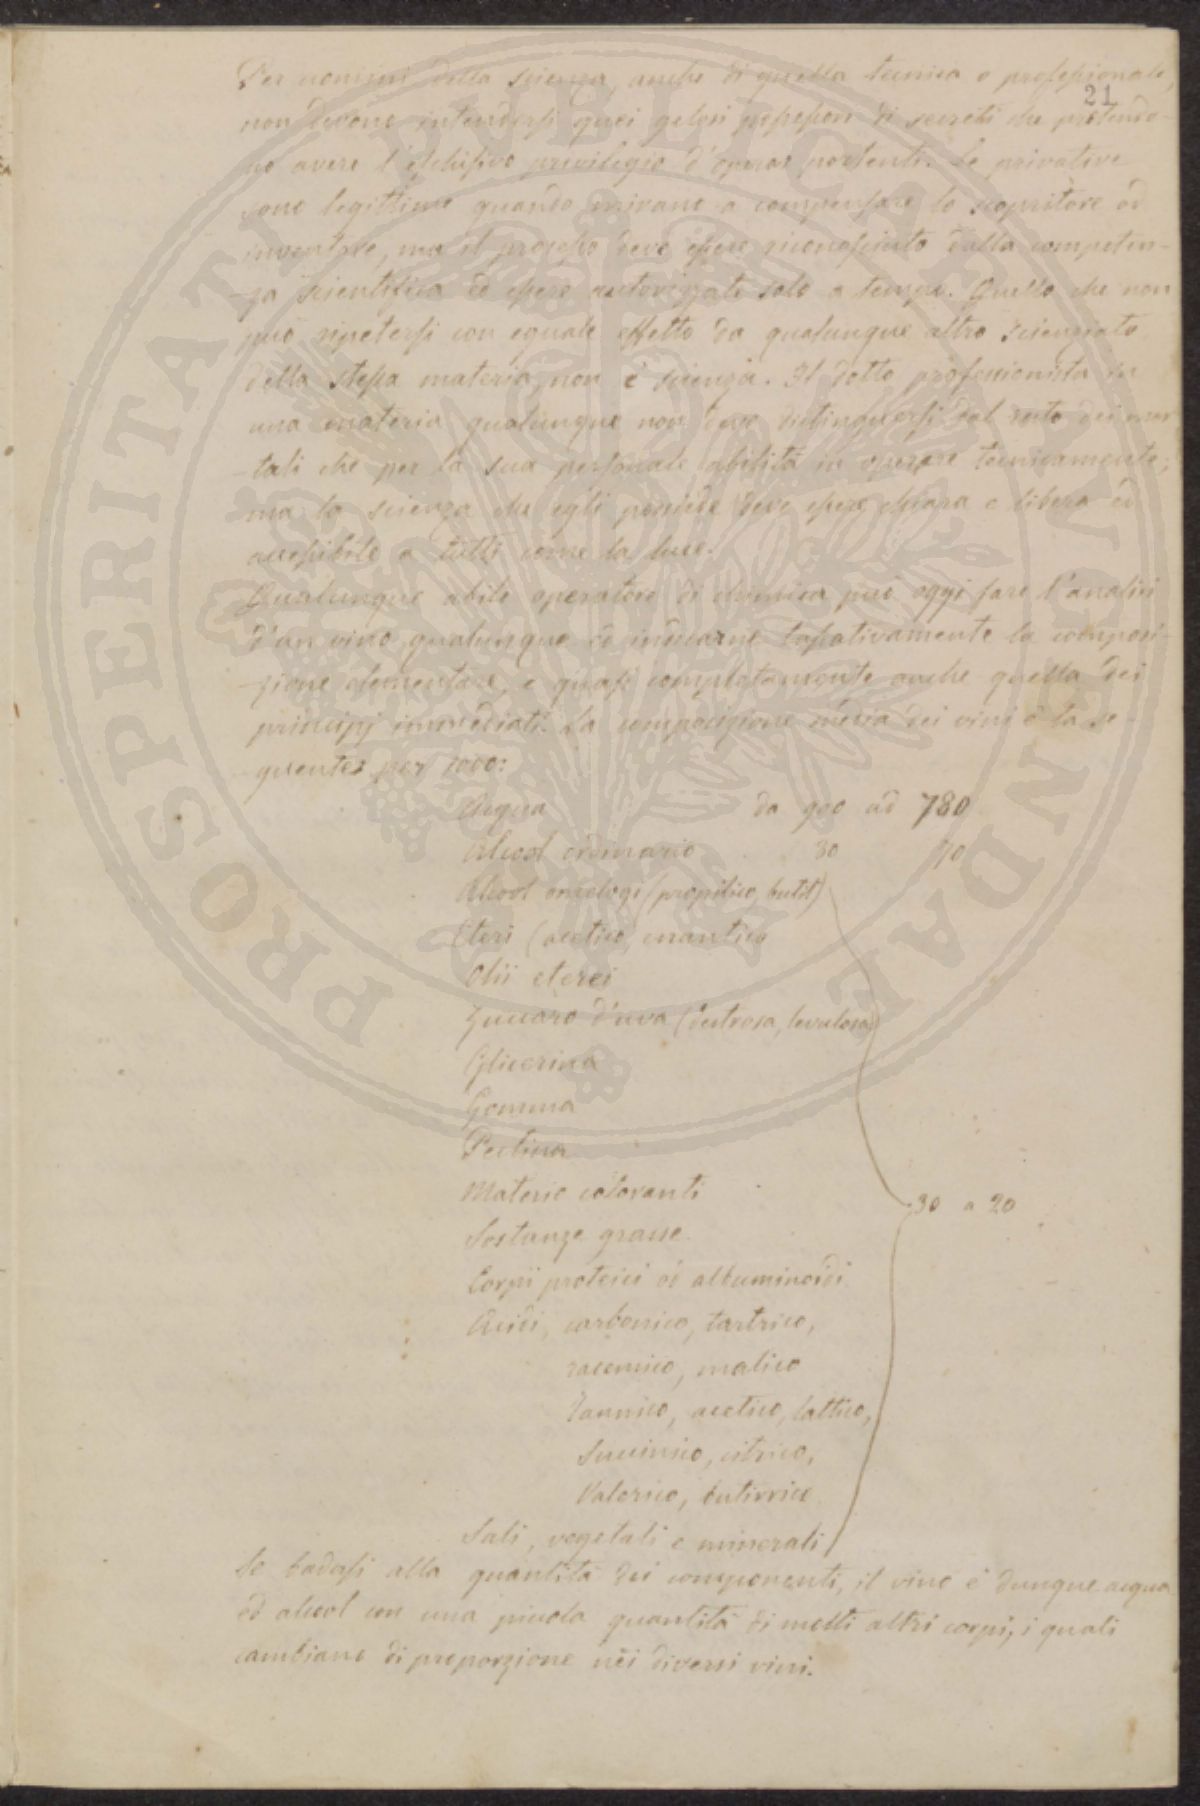 Per uomini della scienza, anche di quella tecnica o professionale,
21
non devono intendersi quei gelosi possessori di secreti che pretendo-
no avere l'esclusivo privilegio d'operar portenti. Le privative
sono legittime quando mirano a compensare lo scopritore od
inventore, ma il processo deve essere riconosciuto dalla competen-
-za scientifica ed essere autorizzato solo a tempo. Quello che non
può ripetersi con eguale effetto da qualunque altro scienziato
della stessa materia, non è scienza. Il dotto professionista in
una materia qualunque non deve distinguersi dal resto dei mor
-tali che per la sua personale abilità in operare tecnicamente;
ma la scienza che egli possiede deve essere chiara e libera ed
accessibile a tutti come la luce.
Qualunque abile operatore di chimica può oggi fare l'analisi
d'un vino qualunque ed indicarne tassativamente la composi-
-zione elementare, e quasi completamente anche quella dei
principj immediati. La composizione media dei vini è la se-
guente per 1000:
Acqua da 900 ad 780
Alcool ordinario 30
Alcool omologi (propilico, butil)
Eteri (acetico, enantico
Olii eterei
Zuccaro d'uva (destrosa, levulosa)
Glicerina
Gomma
Pectina
Materie coloranti
30 a 20
Sostanze grasse
Corpi proteici od albuminoidi
Acidi, carbonico, tartrico,
racemico, malico
Tannico, acetico, lattico,
Succinico, citrico,
Valerico, butirrico
Sali, vegetali e minerali
Se badasi alla quantità dei componenti, il vino è dunque acqua
ed alcool con una piccola quantità di molti altri corpi, i quali
cambiano di proporzione nei diversi vini.
PROSPERITATI PUBLICAE AUGENDAE